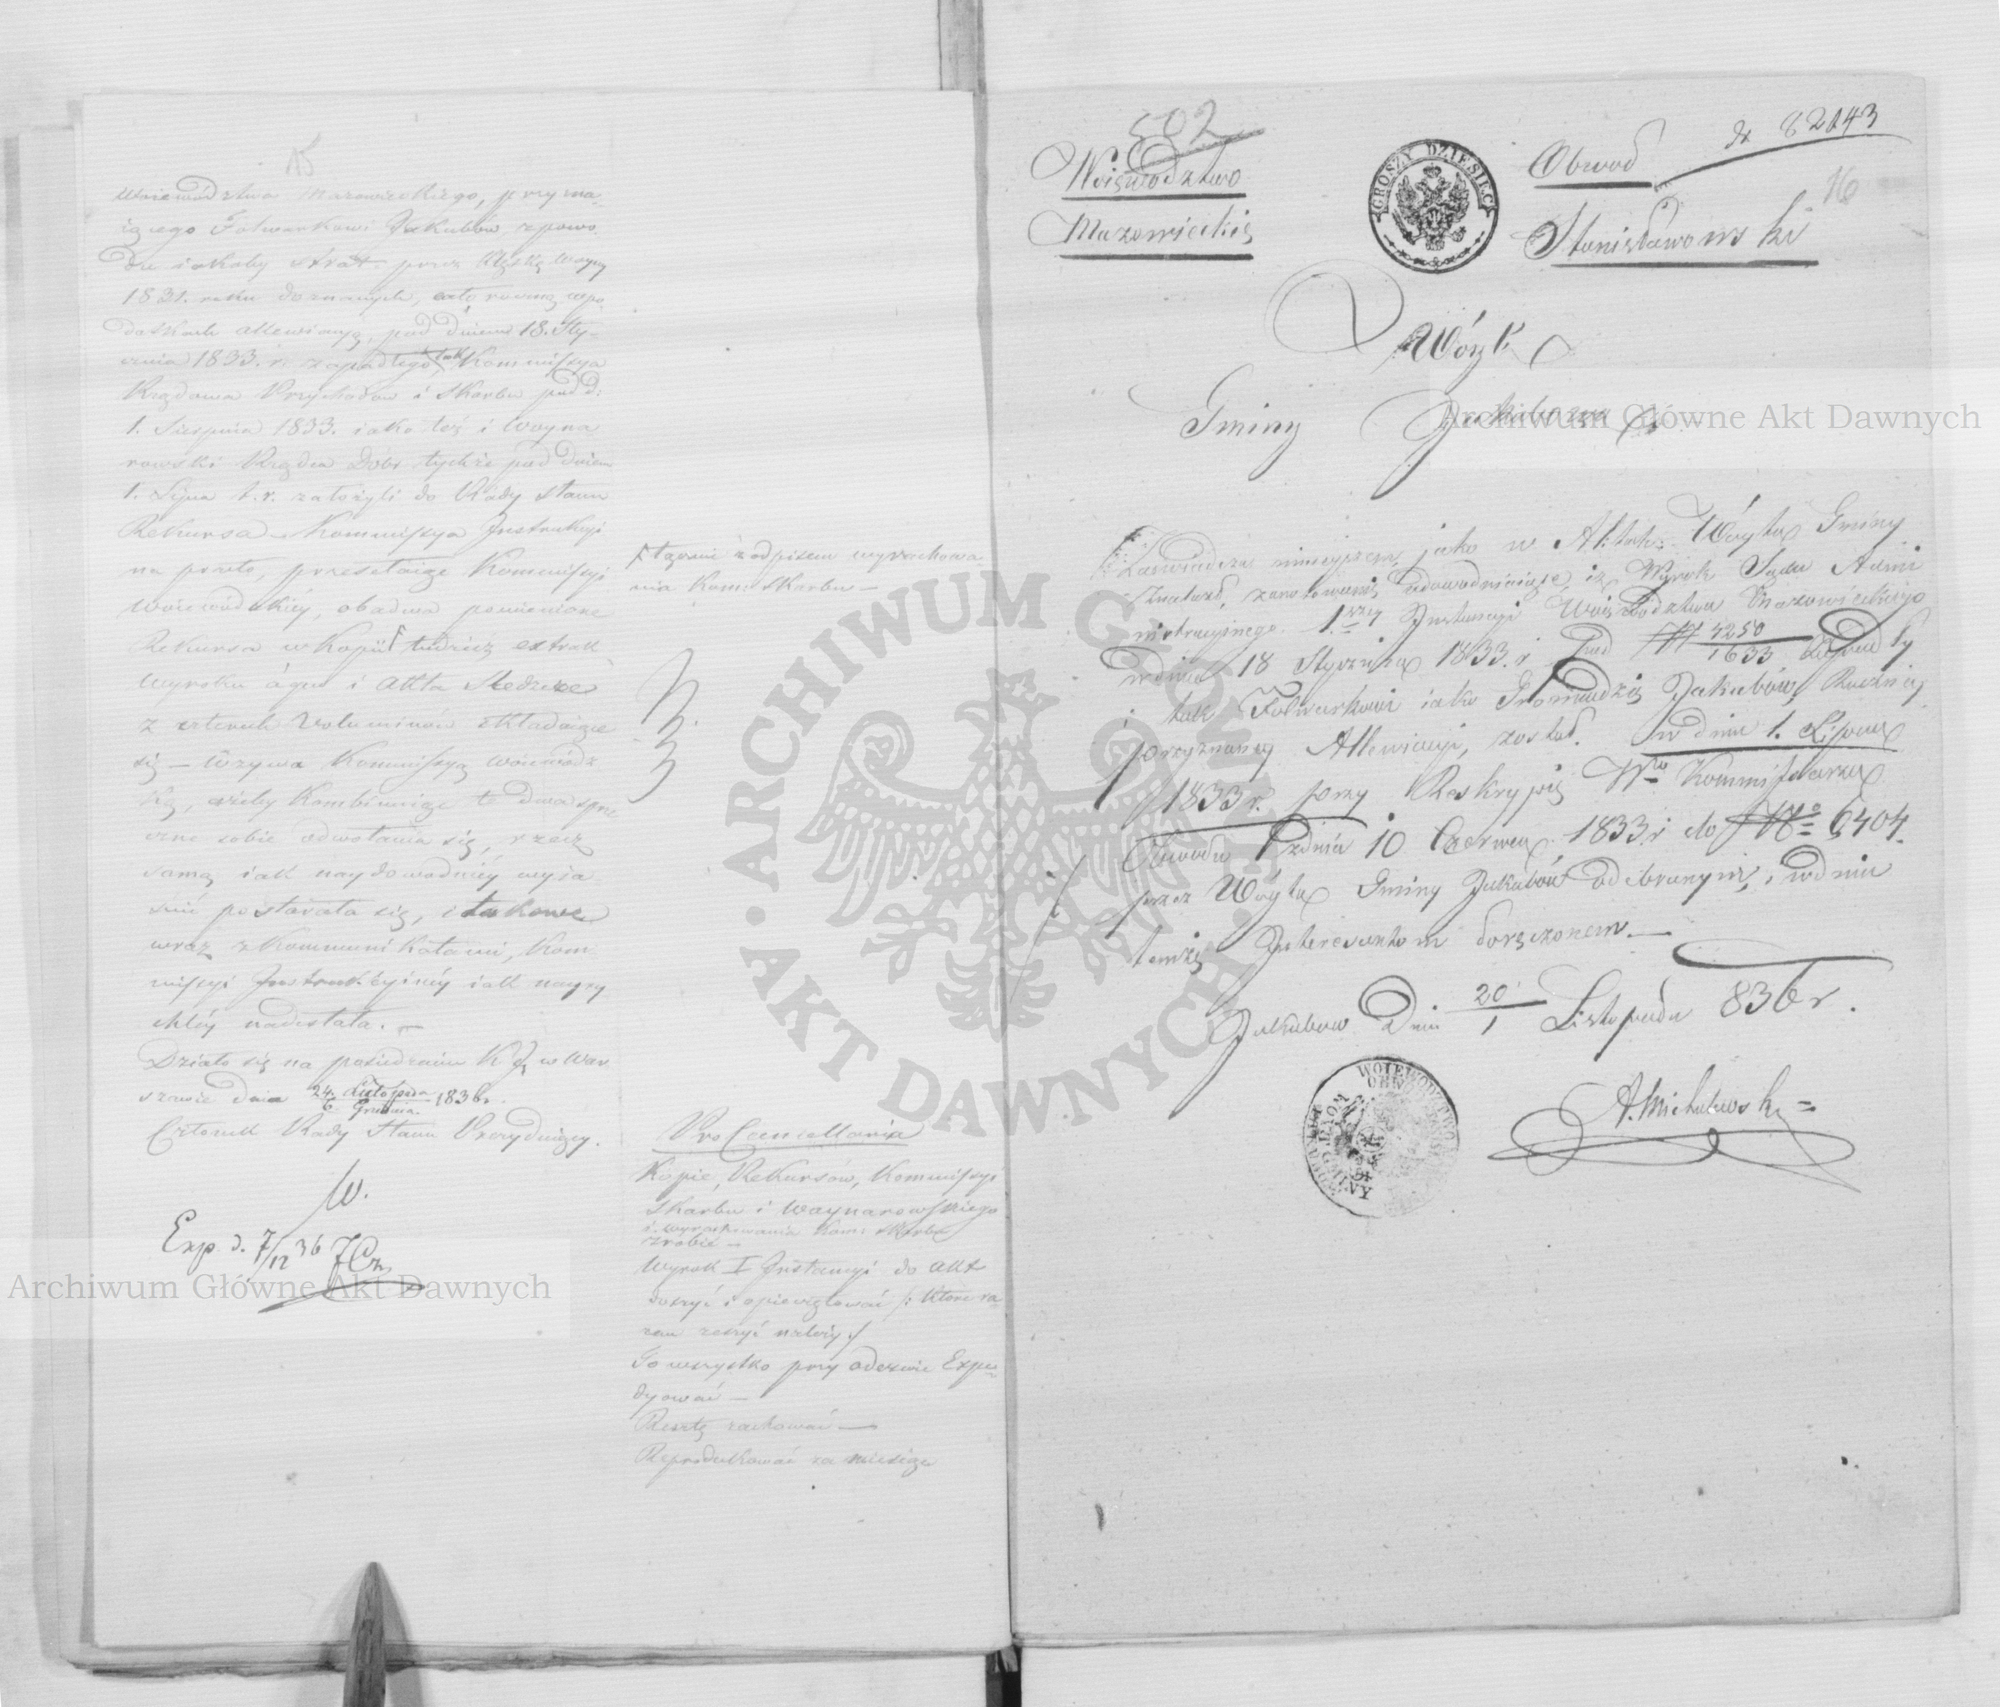 15
Woiewództwa Mazowieckiego, przyzna-
iącego Folwarkowi Jakubów, z powo-
du iakoby strat przez klęskę woyny
1831. roku doznanych, całoroczną w po-
datkach allewiacyą, pod dniem 18. Sty-
cznia 1833. r. zapadłego, tak Kommissya
Rządowa Przychodów i Skarbu pod d:
1. Sierpnia 1833. iako też i Woyna
rowski Rządca Dóbr tychże pod dniem
1. Lipca t.r. założyli do Rady Stanu
Rekursa – Kommissya Instrukcyi
na przeto, przesełaiąc Kommissyi
Woiewódzkiéy, obadwa pomienione
Rekursa w kopii tudzież extrakt
Wyroku i Akta Śledcze
z czterech Voluminow składaiące
się – Wzywa Kommissyą Woiewódz
ką, ażeby kombinuiąc te dwa sprze
czne sobie odwołania się, rzecz
samą iak naydowodniéy wyia-
śnić postarała się, i takowe
wraz z Kommunikatami, Kom-
missyi Instrukcyinéy iak nayry
chléy nadesłała. –
Działo się na posiedzeniu K J. w War
szawie dnia 24. Listopada / 6 Grudnia 1836 r.
Członek Rady Stanu Prezyduiący.
W.
Exp. d. 7/12 36
łącznie z odpisem wyrachowa-
nia Kom: Skarbu –
Pro Cancellaria
Kopie, Rekursów, Kommissyi
Skarbu i Waynarowskiego
i wyrachowania Kom: Skarbu
zrobić –
Wyrok I Instancyi do akt
doszyć i opieczętować /: które ra-
zem zeszyć należy /
To wszystko przy odezwie Expe-
dyować –
Resztę zachować –
Reprodukować za miesiąc
502
Woiewodztwo
Mazowieckie
GROSZY DZIESIĘĆ
Obwod
Stanisławowski
82143
16
Wóyt
Gminy Jakubowa
Zaswiadcza ninieyszem, jako w Aktach Wóyta Gminy
Znalazł, zanotowanie udowadniaiące iż Wyrok Sądu Admi
nistracyinego 1.szey Instancyi Woiewodztwa Mazowieckiego
w dniu 18 Stycznia 1833. r. Pod N 4250 / 1633 zapadły
i tak Folwarkowi iako Gromadzie Jakubów, Roczniey
przyznaney Allewiacyi, został w dniu 1. Lipca
1833 r. przy Reskrypcie Wo Kommissarza
Obwodu z dnia 10 Czerwca 1833. r. do No 6404.
przez Wóyta Gminy Jakubów odebranym, i w dniu
temże Interesantom doręczonem. –
Jakubow Dnia 20/1 Listopada 836 r.
A. Michałowski
WOIEWODZTWO
OBWOD
WOYT GMINY
Archiwum Główne Akt Dawnych
Archiwum Główne Akt Dawnych
ARCHIWUM GŁÓWNE AKT DAWNYCH